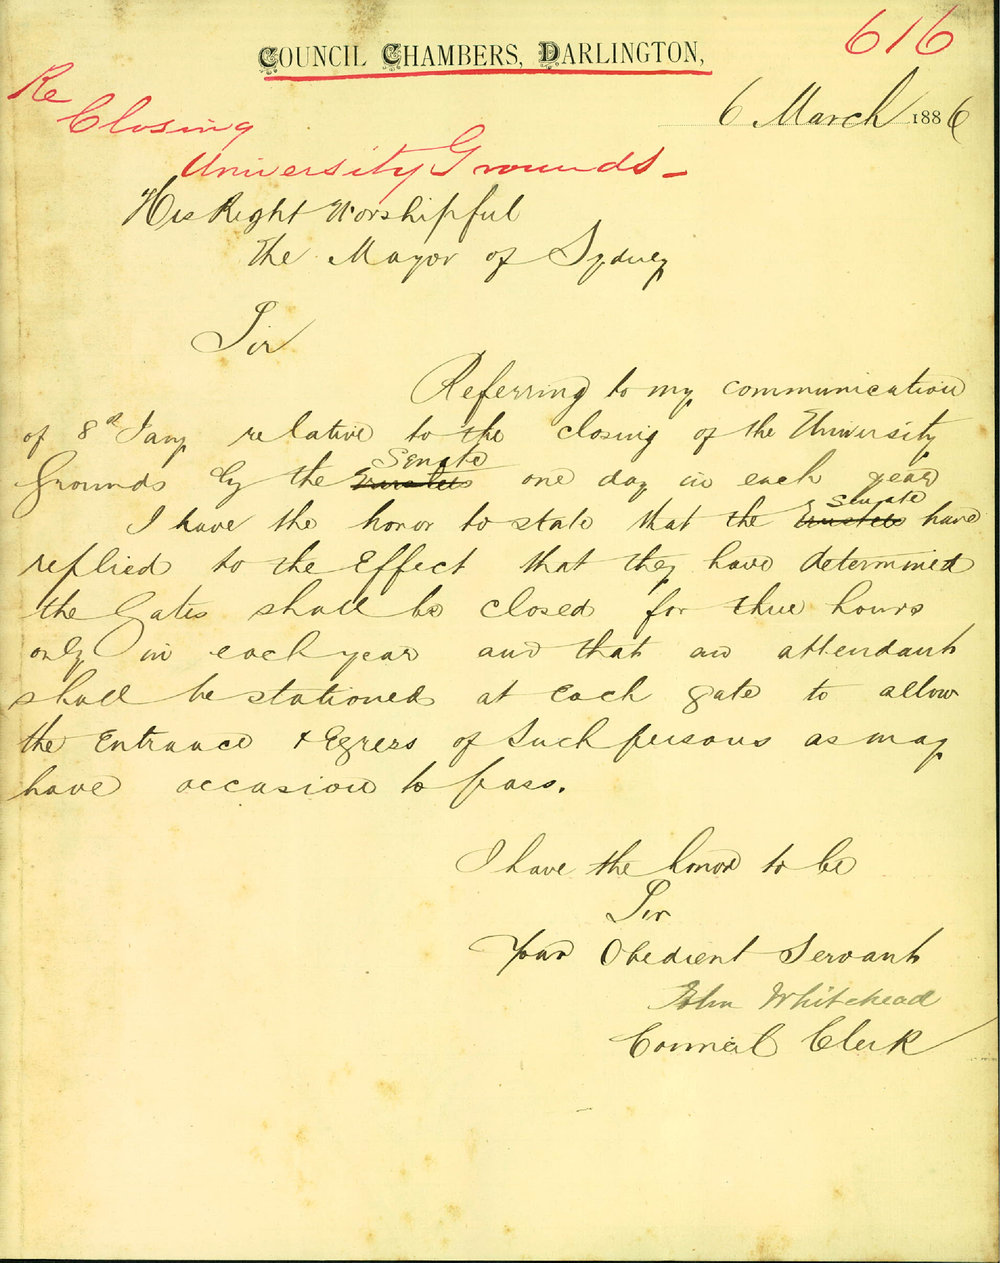 616
COUNCIL CHAMBERS, DARLINGTON,
6 March 1886
Re
Closing
University Grounds -
His Right Worshipful
The Mayor of Sydney
Sir
Referring to my communication
of 8th Jany relative to the closing of the University
Grounds by the Senate Trustees one day in each year
I have the honor to state that the Senate Trustees have
replied to the Effect that they have determined
the Gates shall be closed for three hours
only in each year and that an attendant
shall be stationed at Each gate to allow
the Entrance & Egress of Such persons as may
have occasion to pass.
I have the honor to be
Sir
Your Obedient Servant
John Whitehead
Council Clerk